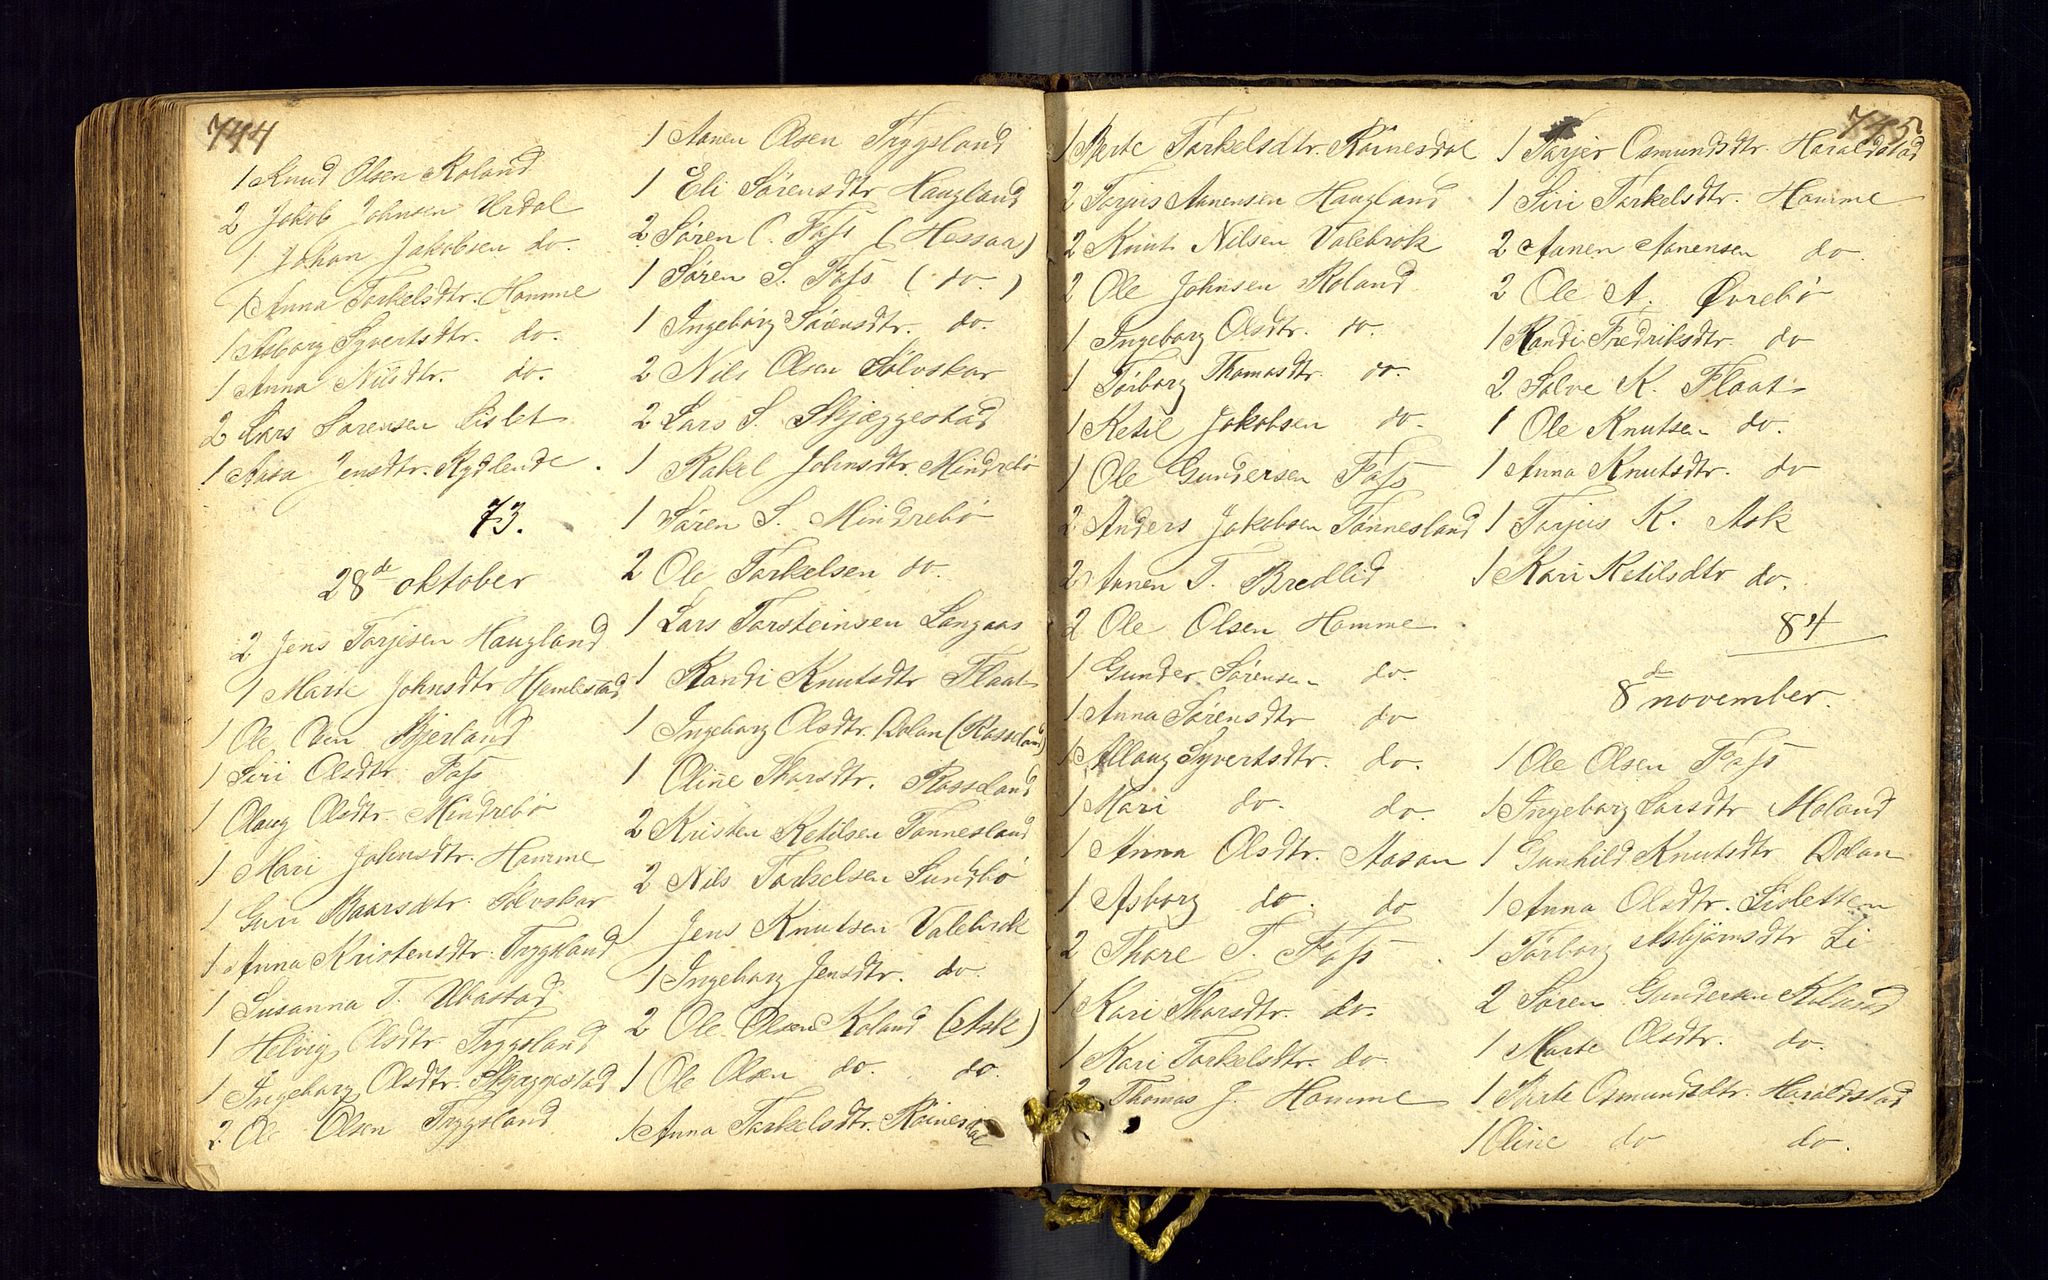 744
1 Knud Olsen Roland
2 Jakob Johnsen Urdal
1 Johan Jakobsen do.
1 Anna Torkelsdtr. Homme
1 Asborg Syvertsdtr. do.
1 Anna Nilsdtr. do.
2 Lars Sørensen Lislet
1 Aasa Jensdtr. Rydlende.
73.
28de oktober
2 Jens Torjesen Haugland
1 Marte Johnsdtr. Hjemlestad
1 Ole Olsen Skjerland
1 Siri Olsdtr. Foss
1 Olaug Olsdtr. Mindrebø
1 Mari Johnsdtr. Homme
1 Guri Baarsdtr. Sølvskar
1 Anna Kristensdtr. Trygsland
1 Susanna T. Ubostad
1 Helvig Olsdtr. Trygsland
1 Ingeborg Olsdtr. Skjæggestad
2 Ole Olsen Trygsland
1 Aanen Olsen Trygsland
1 Eli Sørensdtr Haugland
2 Søren C. Foss (Hessaa)
1 Søren S. Foss (do.)
1 Ingeborg Sørensdtr. do.
2 Nils Olsen Sølvskar
2 Lars S. Skjæggestad
1 Rakel Johnsdtr. Mindrebø
1 Søren S. Mindrebø
2 Ole Torkelsen do.
1 Lars Torsteinsen Langaas
1 Randi Knutsdtr Flaat
1 Ingeborg Olsdtr. Dolan (Rosseland)
1 Oline Thorsdtr. Rosseland
2 Kristen Ketilsen Tønnesland
2 Nils Torkelsen Sundbø
1 Jens Knutsen Valebrok
1 Ingeborg Jensdtr. do.
2 Ole Olsen Roland (Ask)
1 Ole Olsen do. do.
1 Anna Torkelsdtr. Røinesdal
745
1 Berte Torkelsdtr. Røinesdal
2 Torjus Aanensen Haugland
2 Knut Nilsen Valebrok
2 Ole Johnsen Roland
1 Ingeborg Olsdtr. do.
1 Torborg Thomasdtr. do.
1 Ketil Jakobsen do.
1 Ole Gundersen Foss
2 Anders Jakobsen Tønnesland
2 Aanen T. Bredlid
2 Ole Olsen Homme
1 Gunder Sørensen do.
1 Anna Sørensdtr do
1 Allaug Syvertsdtr. do.
1 Mari do. do.
1 Anna Olsdtr. Aasan
1 Asborg do. do
2 Thore T. Foss.
1 Kari Thorsdtr. do.
1 Kari Torkelsdtr. do.
2 Thomas J. Homme
1 Torjer Osmundsdtr. Haraldstad
1 Siri Torkelsdtr. Homme
2 Aanen Aanensen do.
2 Ole A. Øvrebø
1 Randi Fredriksdtr. do
2 Salve K. Flaat
1 Ole Knutsen do.
1 Anna Knutsdtr. do
1 Torjus K. Ask
1 Kari Ketilsdtr do.
84
8de november.
1 Ole Olsen Foss
1 Ingeborg Larsdtr Moland
1 Gunhild Knutsdtr Dolan
1 Anna Olsdtr. Lisletten
1 Torborg Asbjørnsdtr Li
2 Søren Gundersen Roland
1 Marte Olsdtr. do.
1 Berte Osmundsdtr. Haraldstad
1 Oline do do.